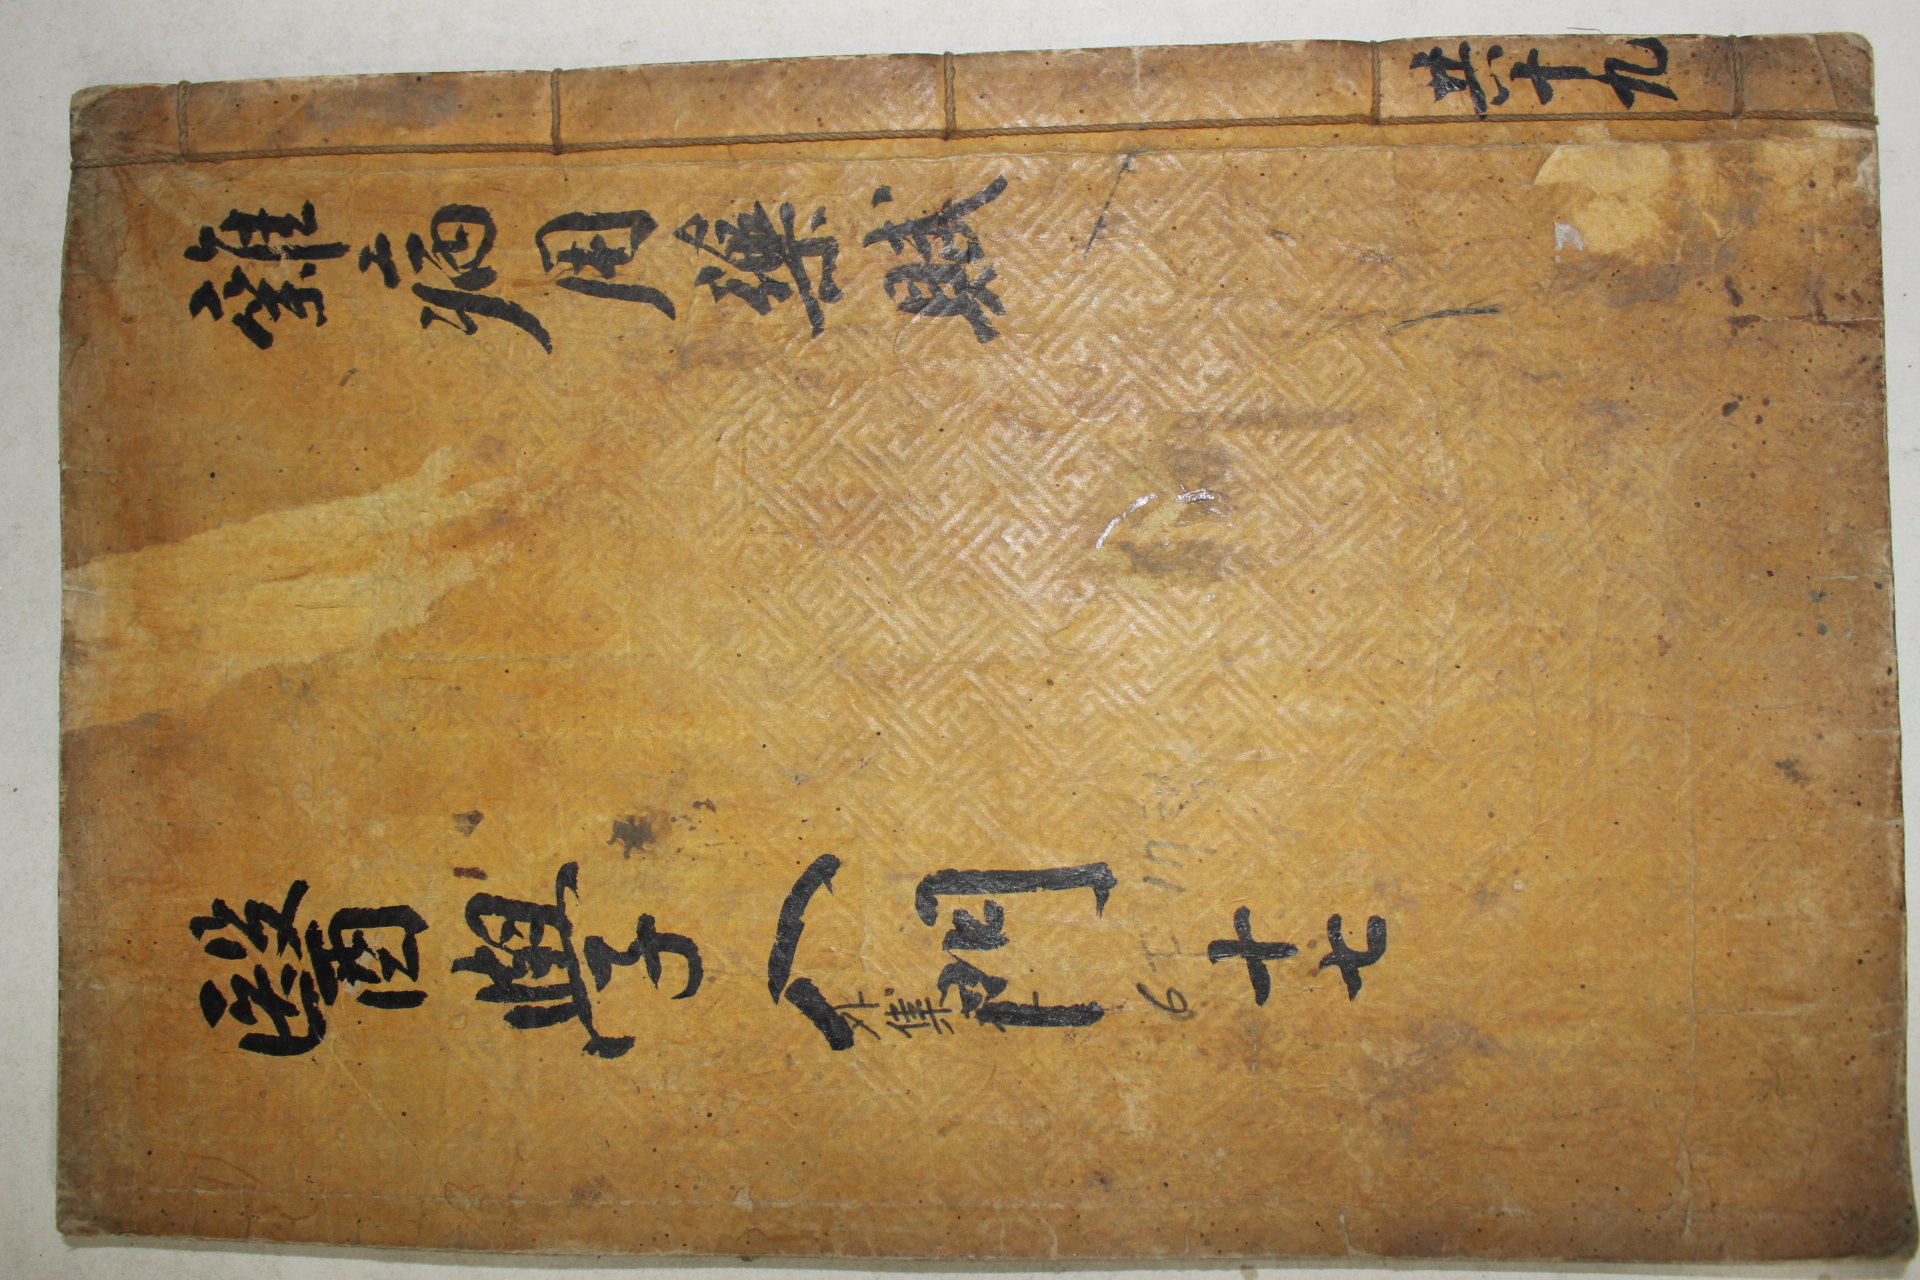 共十九
雜病用藥賦
醫學入門 十七
外集